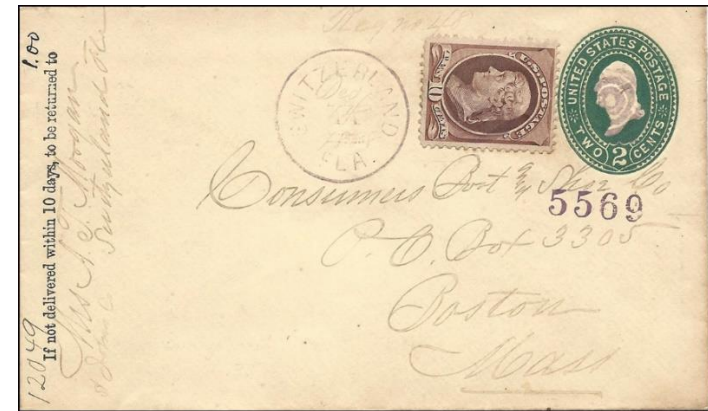 Reg no 48
1.00
If not delivered within 10 days, to be returned to
Mrs A. E. Morgan
Switzerland Fla
12049
SWITZERLAND
Dec
FLA.
U.S. POSTAGE
UNITED STATES POSTAGE
TWO 2 CENTS
Consumers Boot & Shoe Co
5569
P. O. Box 3305
Boston
Mass